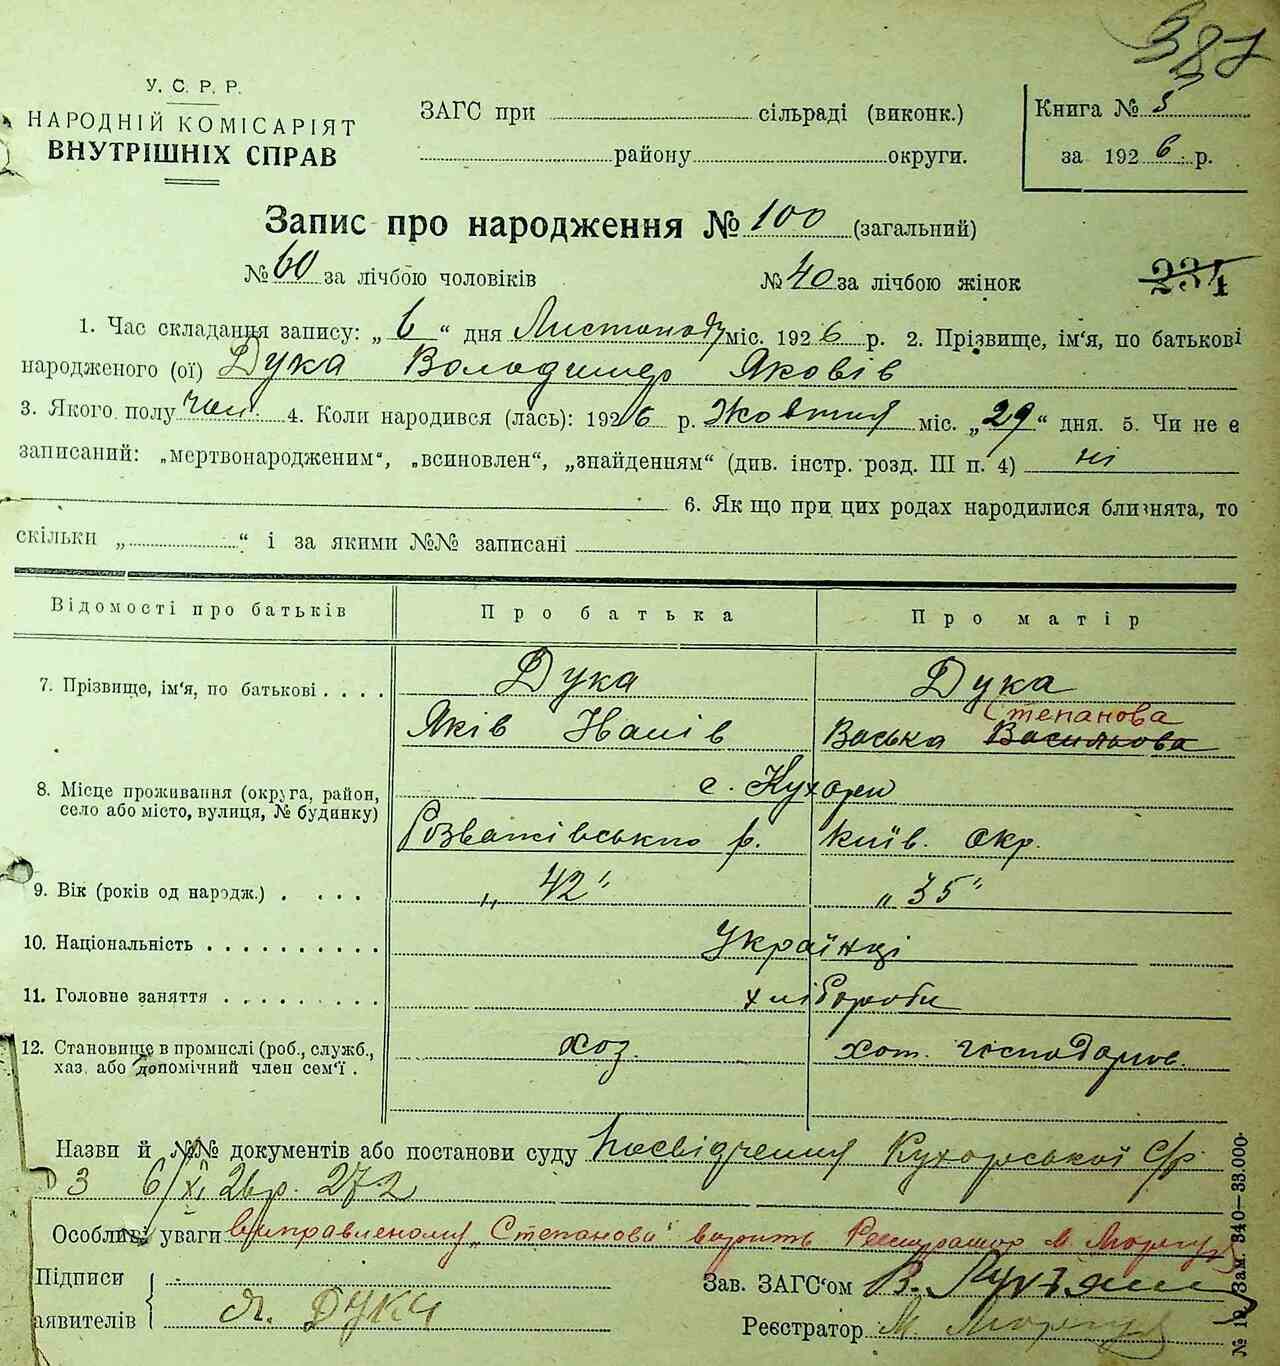 387
У. С. Р. Р.
НАРОДНІЙ КОМІСАРІЯТ
ВНУТРІШНІХ СПРАВ
ЗАГС при сільраді (виконк.)
району округи.
Книга № 5
за 1926 р.
Запис про народження № 100 (загальний)
№ 60 за лічбою чоловіків № 40 за лічбою жінок
234
1. Час складання запису: „ 6 “ дня Листопаду міс. 1926 р. 2. Прізвище, ім'я, по батькові
народженого (ої) Дука Володимер Яковів
3. Якого полу чол. 4. Коли народився (лась): 1926 р. Жовтня міс. „29“ дня. 5. Чи не є
записаний: „мертвонародженим“, „всиновлен“, „знайденням“ (див. інстр. розд. III п. 4) ні
6. Як що при цих родах народилися близнята, то
скільки „ “ і за якими №№ записані
Відомості про батьків Про батька Про матір
7. Прізвище, ім'я, по батькові . . . . Дука Дука
Степанова
Яків Іванів Васька Василькова
8. Місце проживання (округа, район, с. Кухари
село або місто, вулиця, № будинку)
Розважівського р. Київ. окр.
9. Вік (років од народж.) . . . . „ 42 “ „ 35 “
10. Національність . . . . . . . . . . Українці
11. Головне заняття . . . . . . . . . хлібороби
12. Становище в промислі (роб., служб., хоз. господарюв.
хаз. або допомічний член сем'ї .
Назви й №№ документів або постанови суду Посвідчення Кухарської С/р.
6/XI 26 р. 272
Особливі уваги виправленому „Степанова“ вірить Реєстратор М.
Підписи
аявителів Я. ДУКА
Зав. ЗАГС'ом В.
Реєстратор М.
№ 19. Зам. 340—33.000.